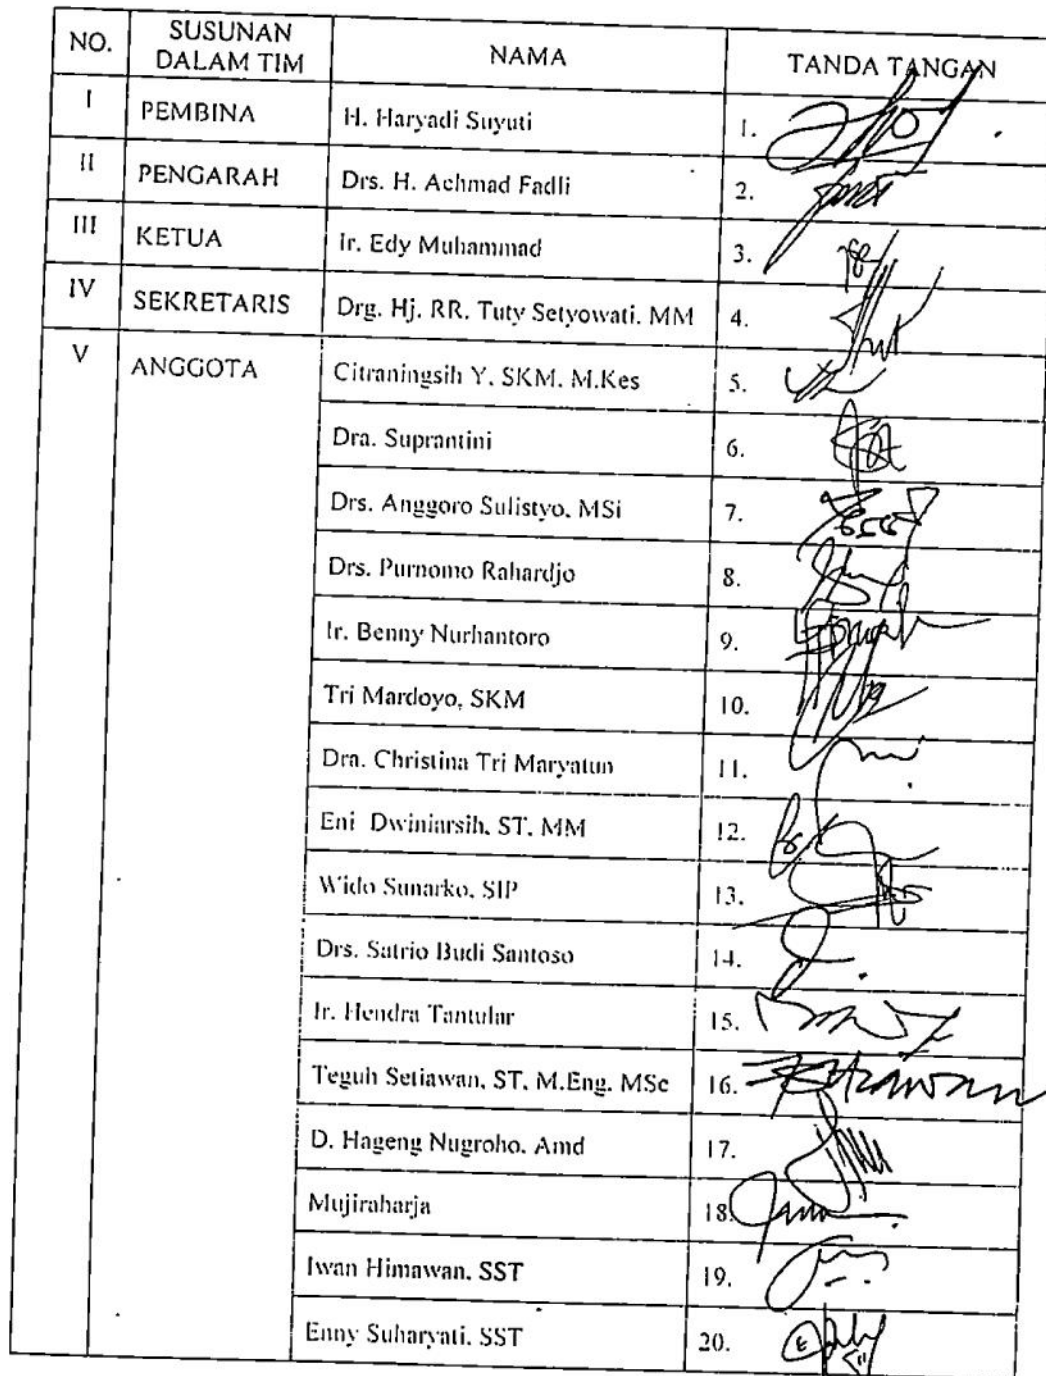 NO. SUSUNAN DALAM TIM NAMA TANDA TANGAN
I PEMBINA H. Haryadi Suyuti 1.
II PENGARAH Drs. H. Achmad Fadli 2.
III KETUA Ir. Edy Muhammad 3.
IV SEKRETARIS Drg. Hj. RR. Tuty Setyowati. MM 4.
V ANGGOTA Citraningsih Y. SKM. M.Kes 5.
Dra. Suprantini 6.
Drs. Anggoro Sulistyo. MSi 7.
Drs. Purnomo Rahardjo 8.
Ir. Benny Nurhantoro 9.
Tri Mardoyo, SKM 10.
Dra. Christina Tri Maryatun 11.
Eni Dwiniarsih. ST. MM 12.
Wido Sunarko, SIP 13.
Drs. Satrio Budi Santoso 14.
Ir. Hendra Tantular 15.
Teguh Setiawan, ST, M.Eng. MSc 16.
D. Hageng Nugroho. Amd 17.
Mujiraharja 18.
Iwan Himawan. SST 19.
Enny Suharyati. SST 20.